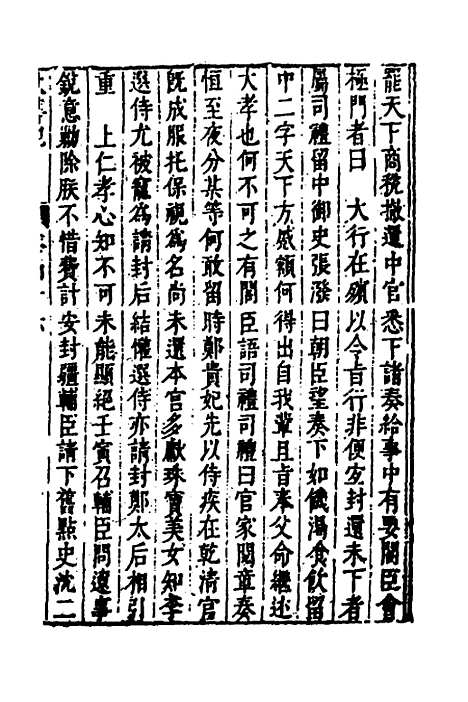 罷天下商稅撤還中官悉下諸奏給事中有要閣臣會
極門者曰　大行在殯以今旨行非便宜封還未下者
屬司禮留中御史張潑曰朝臣望奏下如饑渴食飲留
中二字天下方蹙額何得出自我輩且旨奉父命繼述
大孝也何不可之有閣臣語司禮司禮曰官家閱章奏
恒至夜分某等何敢留時鄭貴妃先以侍疾在乾清宮
既成服托保視為名尚未還本宮多獻珠寶美女知李
選侍尤被寵為請封后結懽選侍亦請封鄭太后相引
重　上仁孝心知不可未能顯絕壬寅召輔臣問遼事
銳意勦除朕不惜費計安封疆輔臣請下舊點史沈二